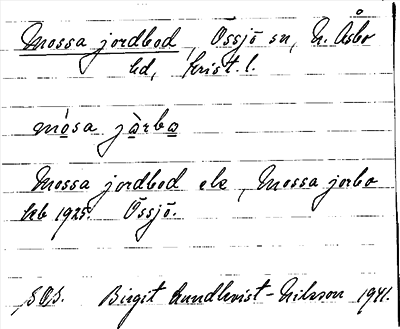 Mossa jordbod, Össjö sn, N. Åsbo
hd, Krist. l.
mòsa jàrba
Mossa jordbod ek, Mossa jorbo
hb 1925. Össjö.
SOS. Birgit Lundkvist-Nilsson 1941.